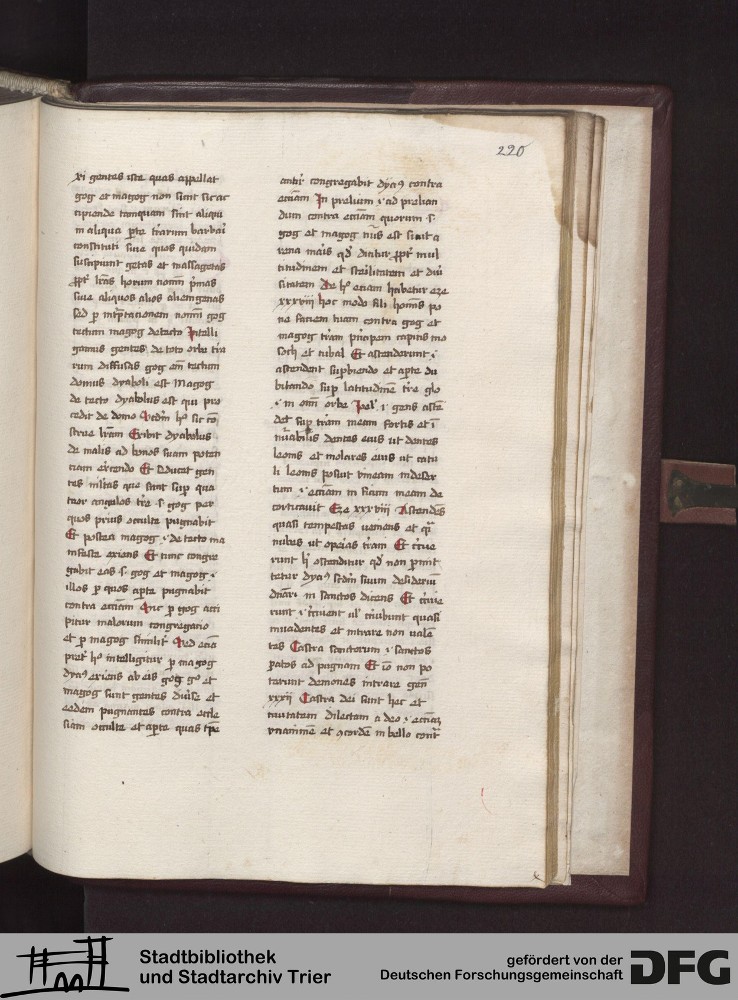 220
xi gentes iste quas appellat
gog et magog non sunt sic ac
cipiende tamquam sint aliqui
in aliqua pte trarum barbari
constituti siue quos quidam
suscipiunt getas et massagetas
ppt lras horum nomm pmas
siue aliquos alios aliemgenas
sed p mtptacionem nomm gog
tectum magog de tecto Intelli
gamus gentes de toto orbe tra
rum diffusas gog em tectum
domus dyaboli est Magog
de tecto dyabolus est qui pro
cedit de domo
strue lram Exibit dyabolus
de malis ad bonos suam poten
ciam exercendo Et seducet gen
tes que sunt sup qua
tuor angulos tre s. gog per
quos prius occulte pugnabit
Et postea magog de tecto ma
nifeste exiens Et tunc congre
gabit eas s. gog et magog
illos p quos apte pugnabit
contra ecciam p gog acci
pitur malorum congregacio
et p magog similit Sed
intelligitur p magog
exiens ab eis gog et
magog sunt gentes diuise et
eedem pugnantes contra eccle
siam occulte et apte quas tpe
congregabit contra
ecciam In prelium ad prelian
dum contra ecciam quorum s.
gog et magog est sicut a
rena maris dicitur ppt mul
titudinem et sterilitatem et
sitatem De ho eciam habetur eze
xxxviii hoc modo fili homis po
ne faciem tuam contra gog et
magog tram pncipem capitis mo
soch et tubal Et ascenderunt
ascendent supbiendo et apte du
bitando sup latitudinem tre
in omi orbe gens
sup tram meam fortis et
dentes eius ut dentes
leonis et molares eius ut catu
li leonis posuit vineam in deser
tum ecciam in ficum meam de
corticauit Eze xxxviii Ascendes
quasi tempestas ueniens et
nubes ut opias tram Et
runt ostenditur non pmit
tetur scdm suum desiderium
in sanctos dicens Et
runt quasi
inuadentes et intrare non ualen
tes Castra sanctorum sanctos
patos ad pugnam Et io non po
terunt demones intrare gen
xxxii Castra dei sunt hec et
ciuitatem dilectam a deo
vnanimem et in bello
Stadtbibliothek
und Stadtarchiv Trier
gefördert von der
Deutschen Forschungsgemeinschaft
DFG